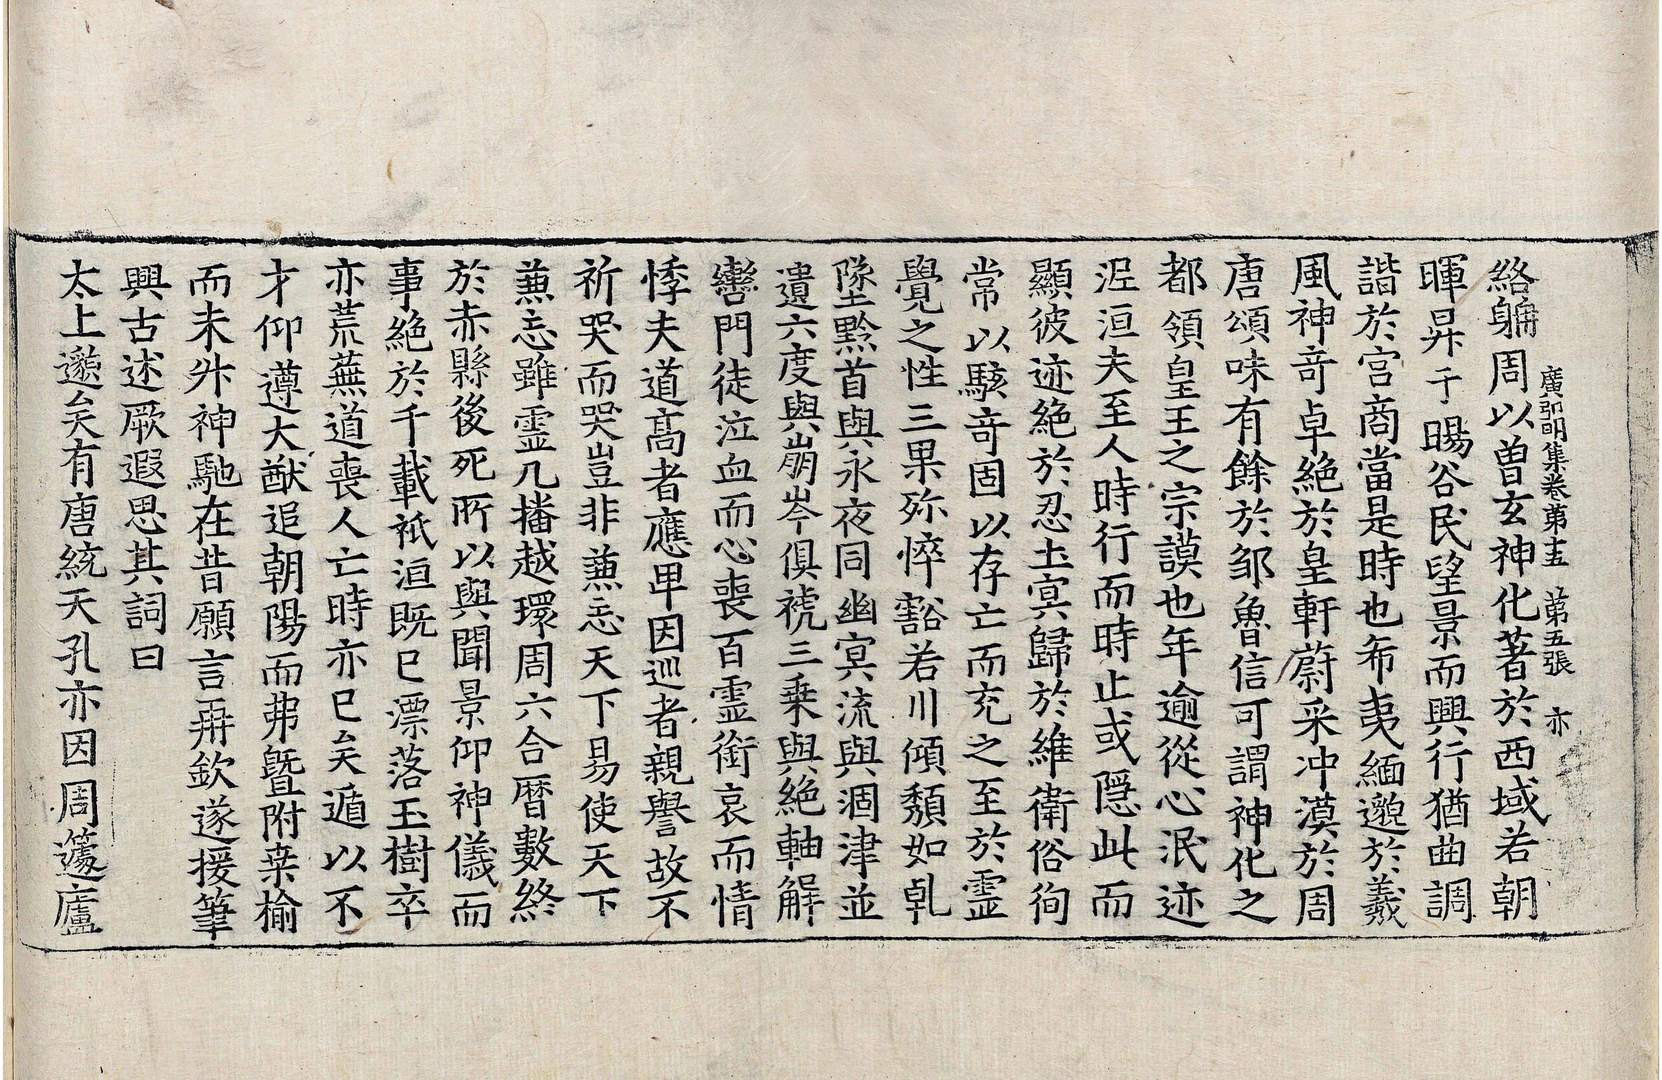 廣弘明集卷第十五　第五張　亦
絡躹周以曽玄神化著於西域若朝
暉昇于暘谷民望景而興行猶曲調
諧於宫商當是時也布夷緬邈於羲
風神竒卓絶於皇軒蔚采冲漠於周
唐頌味有餘於邹魯信可謂神化之
都領皇王之宗謨也年逾從心泯迹
泥洹夫至人時行而時止或隠此而
顯彼迹絶於忍土冥歸於維衛俗徇
常以駭竒固以存亡而充之至於霊
覺之性三果殄悴豁若川傾頽如乹
墜黔首與永夜同幽冥流與涸津並
遺六度與崩岑俱褫三乗與絶軸解
轡門徒泣血而心喪百霊銜哀而情
悸夫道髙者應卑因巡者親譽故不
祈哭而哭豈非兼忘天下易使天下
兼忘難霊几播越環周六合暦數終
於赤縣後死所以與聞景仰神儀而
事絶於千載祇洹既已漂落玉樹卒
亦荒蕪道喪人亡時亦已矣遁以不
才仰遵大猷追朝陽而弗曁附桒榆
而未升神馳在昔願言再欽遂援筆
興古述厥遐思其詞曰
太上邈矣有唐統天孔亦因周籧廬